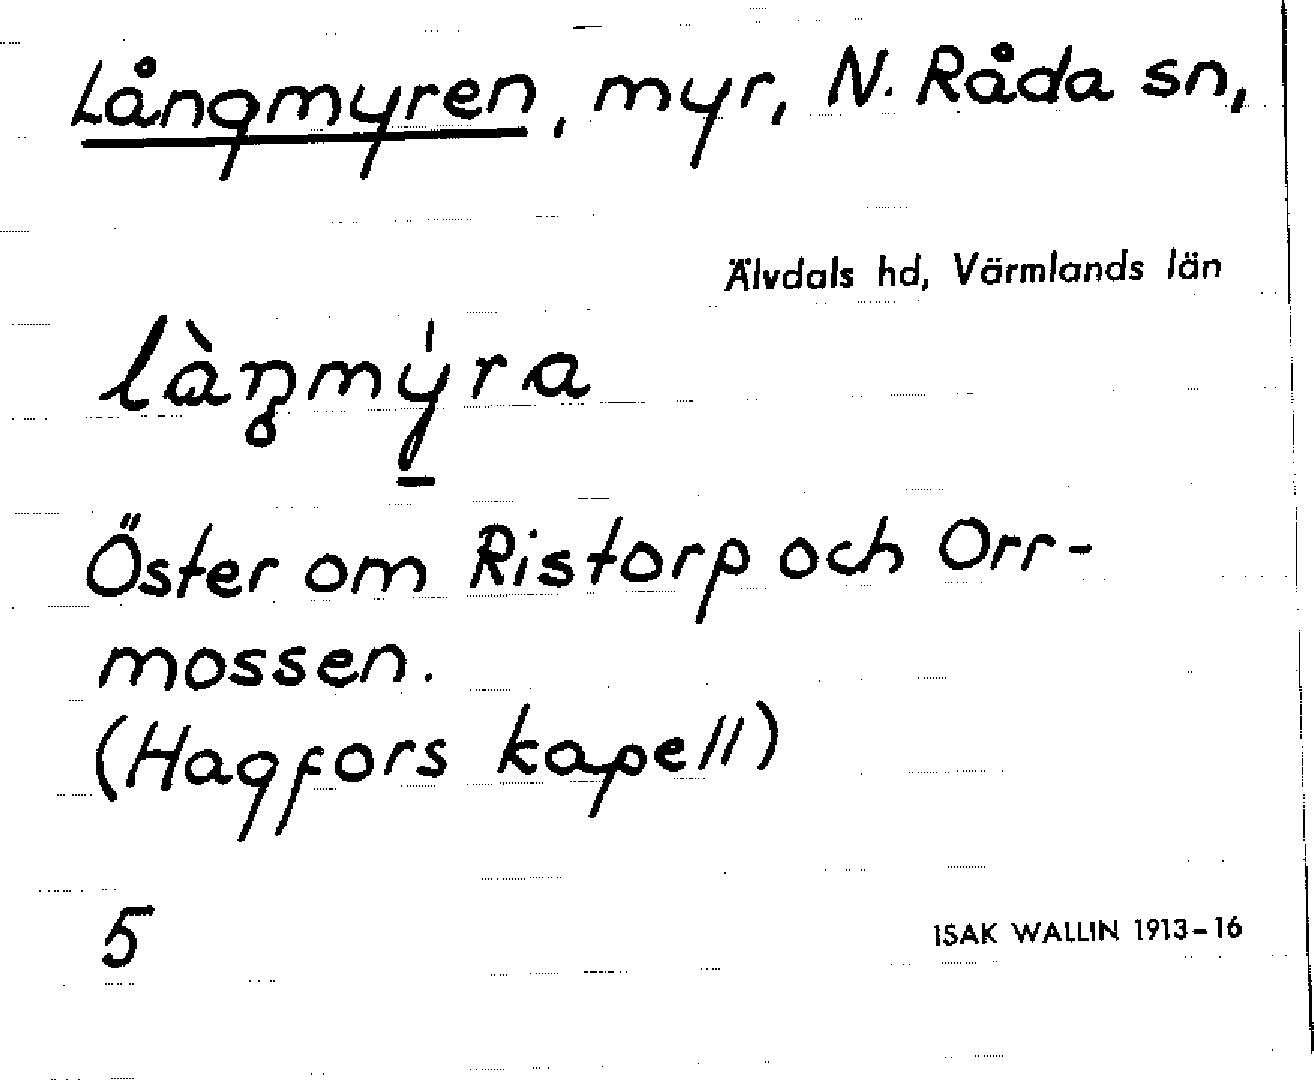 Långmyren, myr, N. Råda sn,
Älvdals hd, Värmlands län
là̀ŋmýra
Öster om Ristorp och Orr-
mossen.
(Hagfors kapell)
5
ISAK WALLIN 1913-16